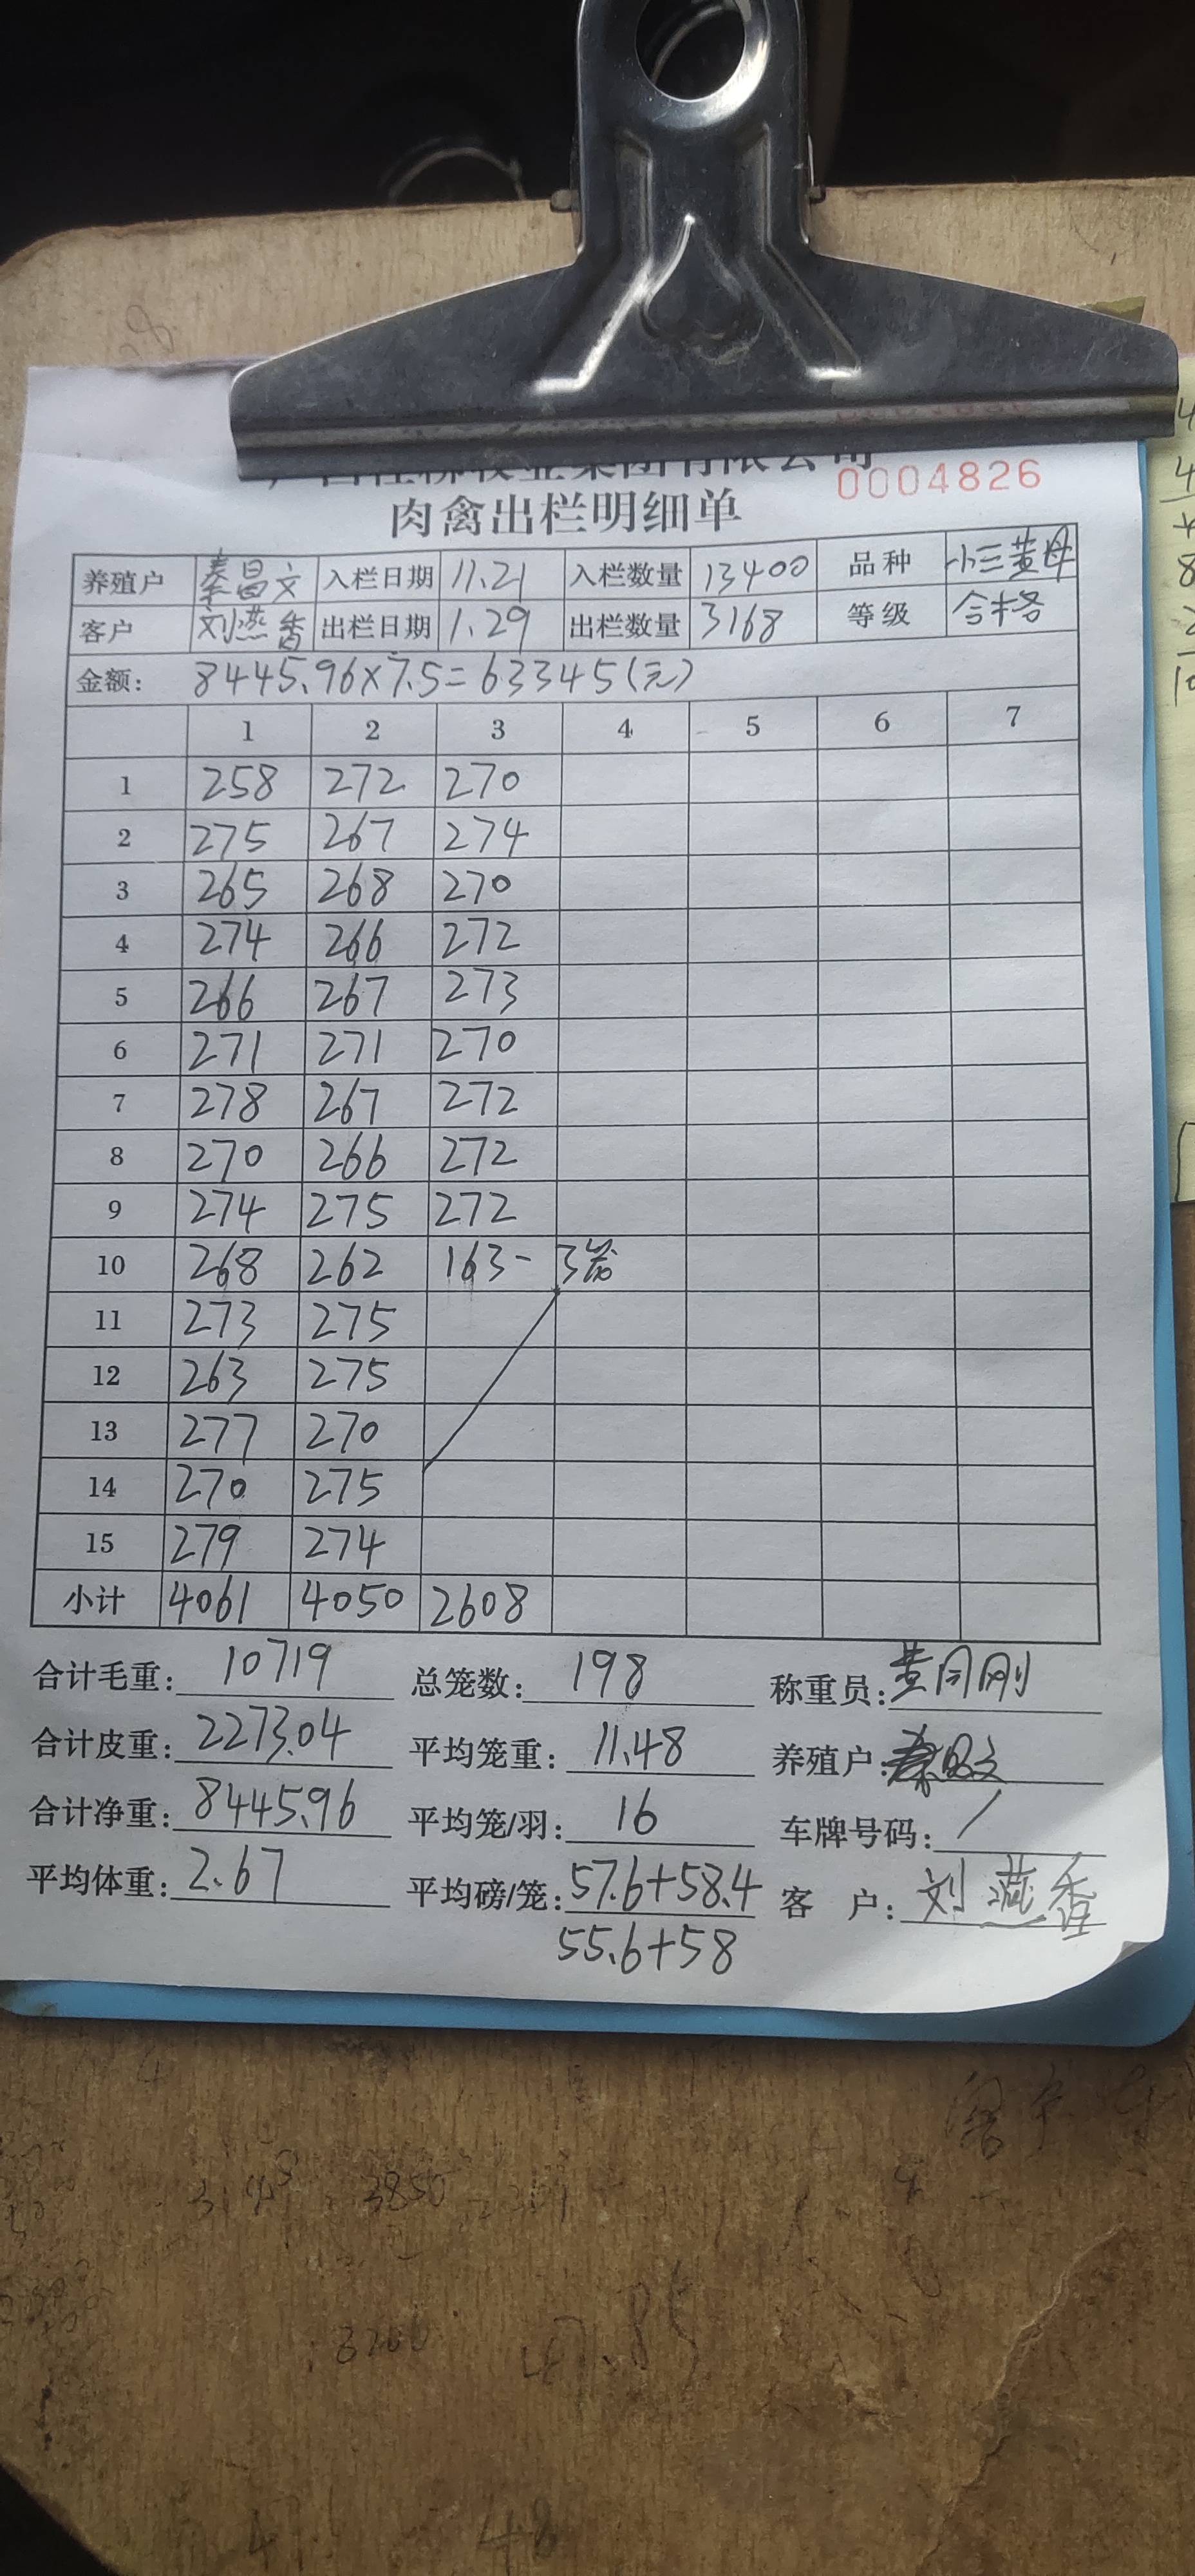 肉禽出栏明细单
0004826
养殖户 秦昌文 入栏日期 11.21 入栏数量 13400 品种 小三黄母
客户 刘燕香 出栏日期 1.29 出栏数量 3168 等级 合格
金额: 8445.96×7.5=63345(元)
1 2 3 4 5 6 7
1 258 272 270
2 275 267 274
3 265 268 270
4 274 266 272
5 266 267 273
6 271 271 270
7 278 267 272
8 270 266 272
9 274 275 272
10 268 262 163- 3笼
11 273 275
12 263 275
13 277 270
14 270 275
15 279 274
小计 4061 4050 2608
合计毛重: 10719 总笼数: 198 称重员: 黄同刚
合计皮重: 2273.04 平均笼重: 11.48 养殖户:
合计净重: 8445.96 平均笼/羽: 16 车牌号码: /
平均体重: 2.67 平均磅/笼: 57.6+58.4 客 户: 刘燕香
55.6+58